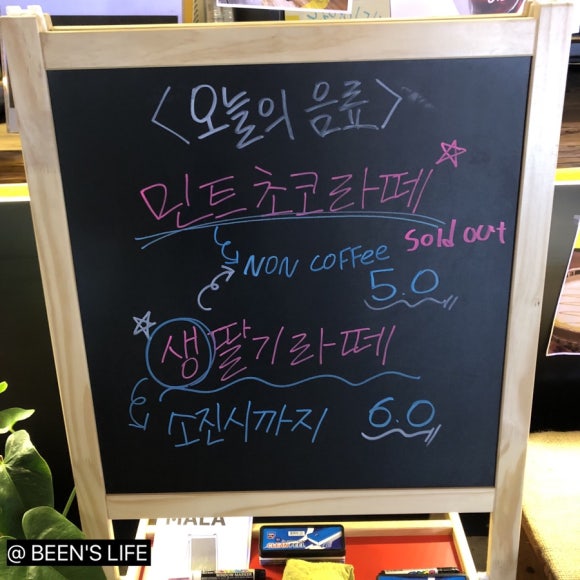 <오늘의 음료>
민트초코라떼
sold out
NON COFFEE
5.0
생딸기라떼
소진시까지
6.0
MALA
@ BEEN'S LIFE